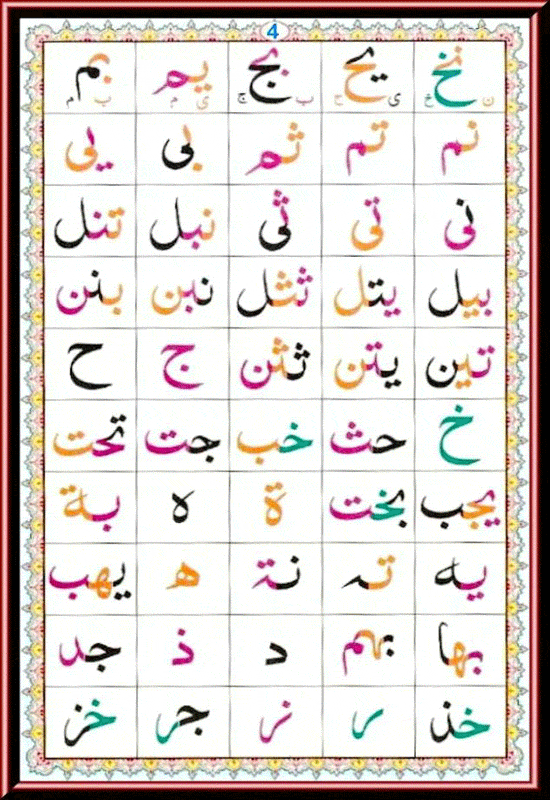 4
نخ يح بج يم بم
ن خ ى ح ب ج ى م ب م
نم تم ثم بى يى
نى تى ثى نبل تنل
بيل يتل ثثل نبن بنن
تين يتن ثثن ج ح
خ حث خب جت تحت
يجب بخت ة ه بة
يه ته نة ھ يهب
بها بهم د ذ جد
خذ ر نر جر خز